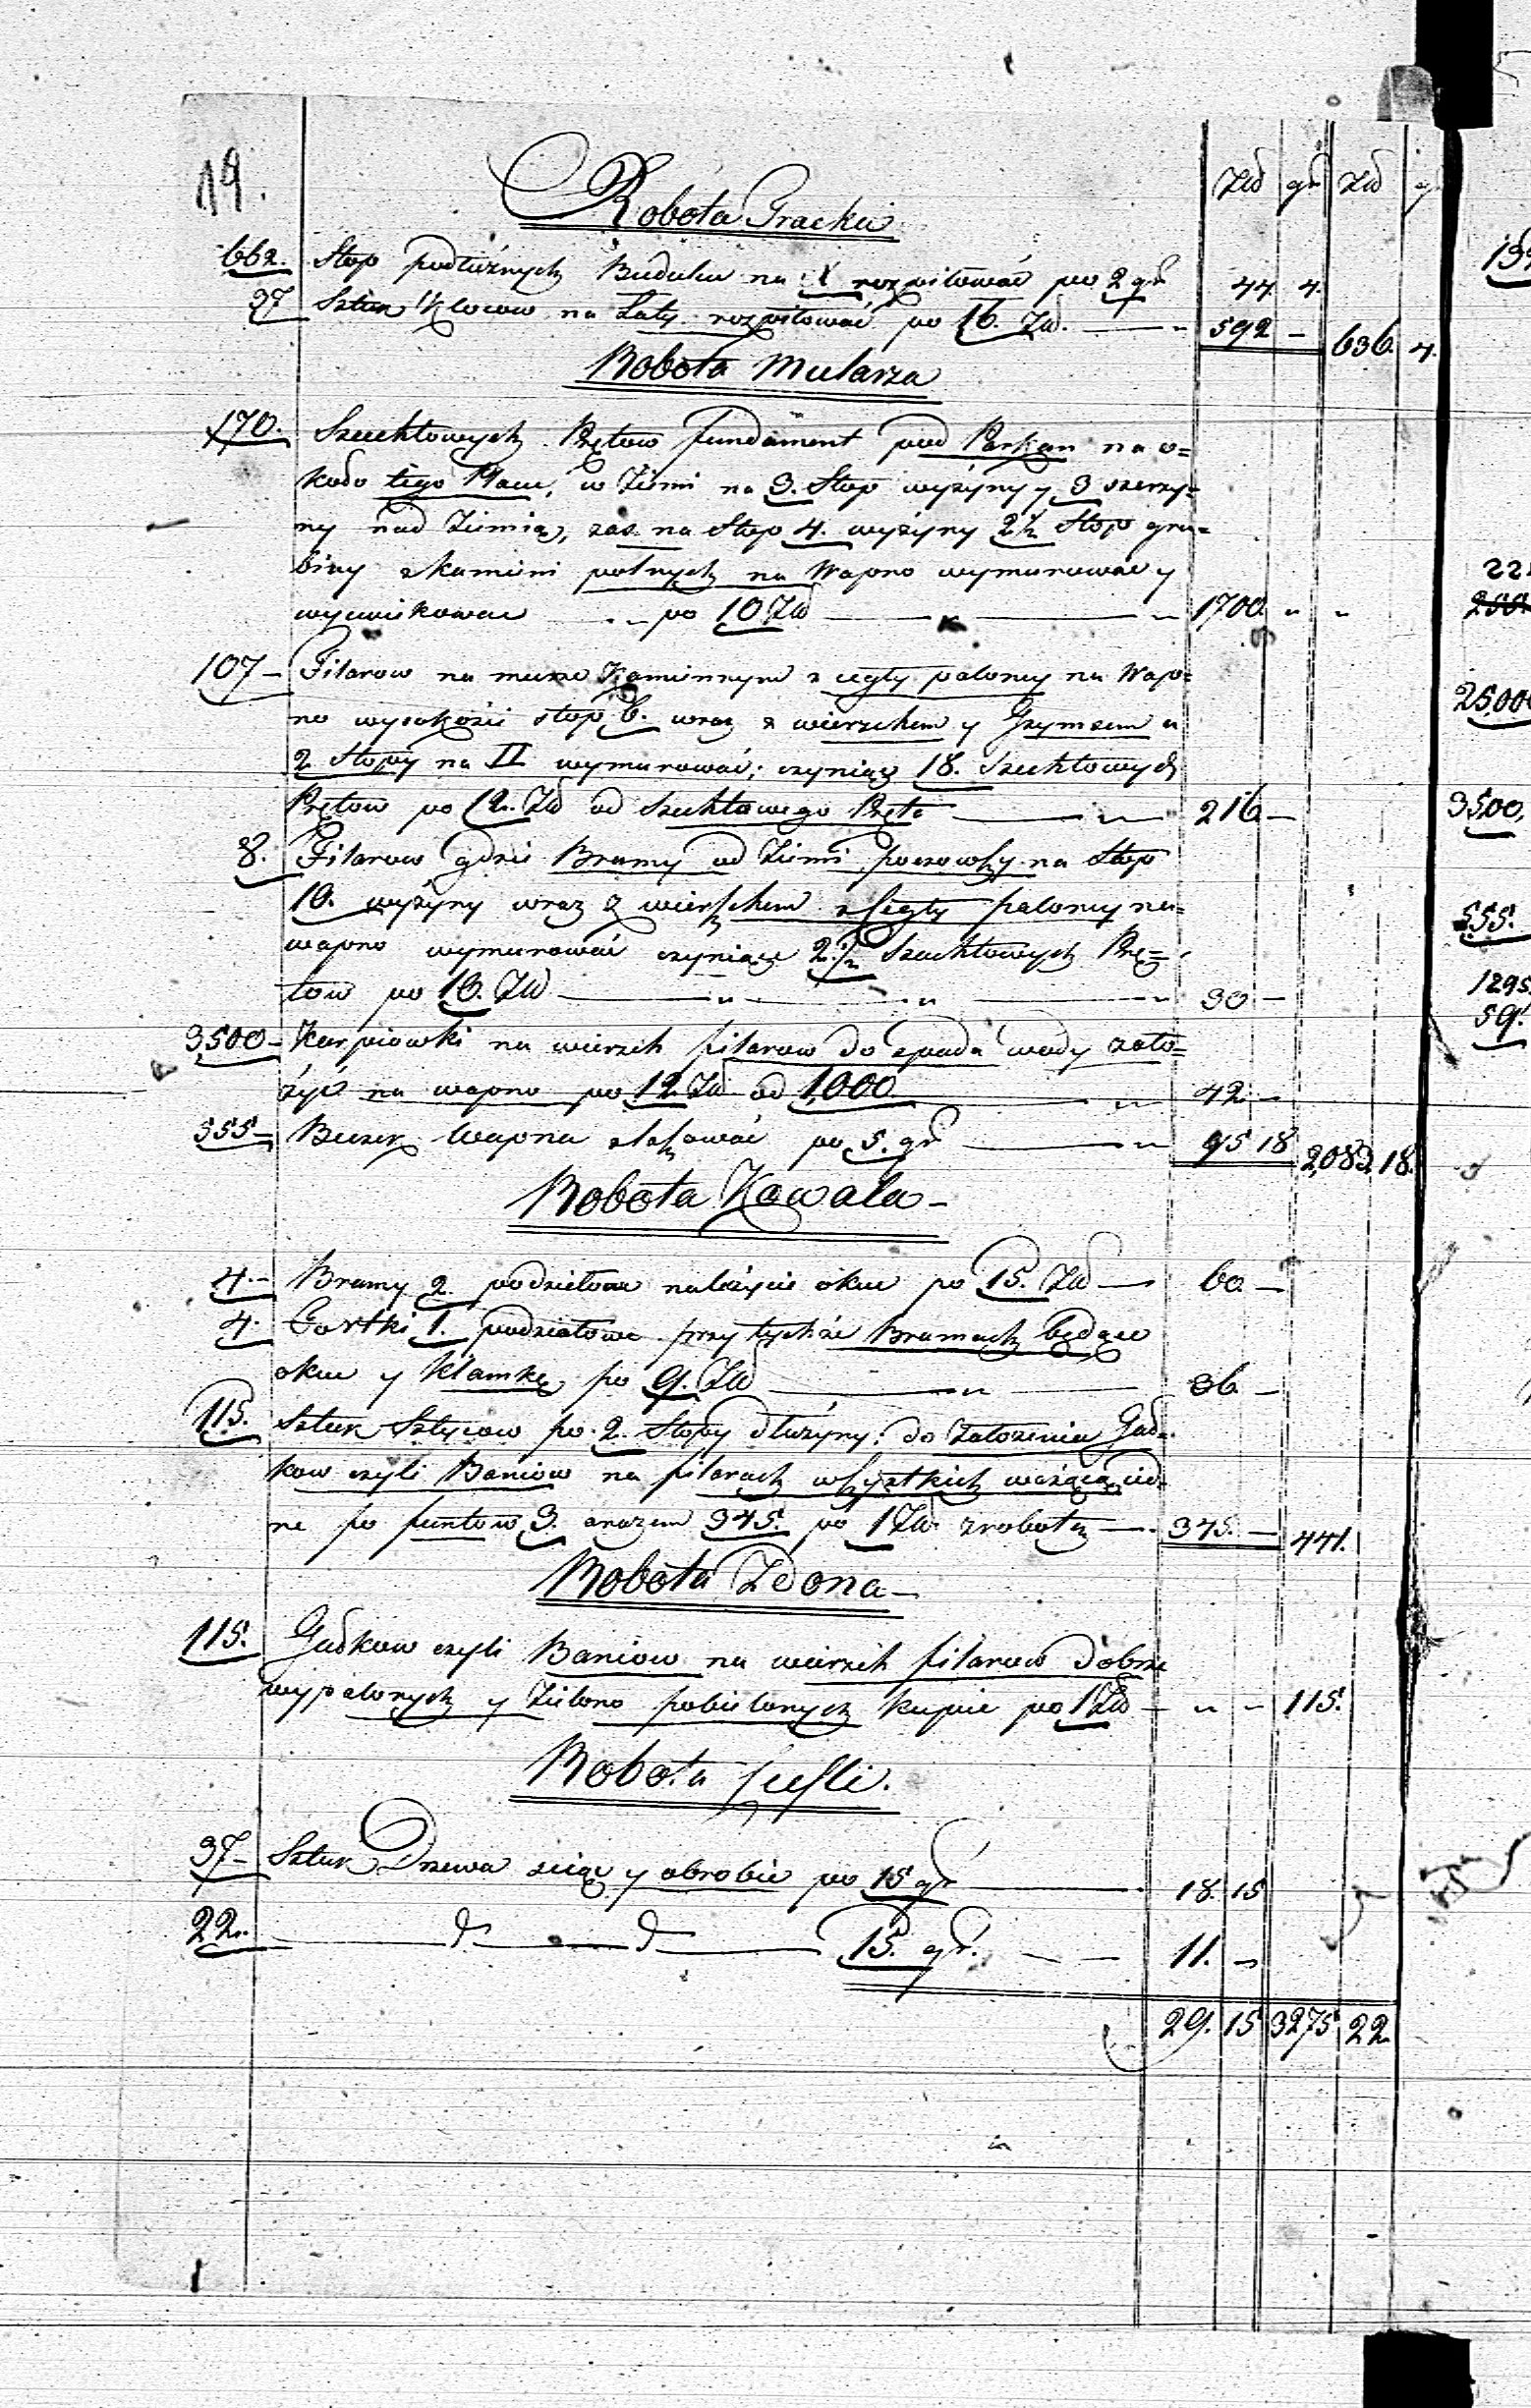 19.
Złł gr Złł g
Robota Tracka
662. Stop podłużnych Budulcu na X rozpiłować po 2 gr 44. 4.
37 Sztuk Klocow na Łaty rozpiłować po 16. Złł. 592 — 636. 4.
Robota Mularza
170. Szachtowych Prętow fundament pod Parkan na o=
koło tego Placu, w Ziemi na 3. Stop wyżyny y 3 szerzy=
ny nad Ziemią, zas na Stop 4. wyżyny 2½ Stop gru=
biny z kamieni polnych na Wapno wymurować y
wycwikować po 10 Złł 1700.
107 — Filarow na murze Kamiennym z cegły paloney na Wap=
no wysokości stop 6. wraz z wierzchem y Gzymsem a
2 Stopy na II wymurować; czyniąc 18. Szachtowych
Prętow po 12. Złł od Szachtowego Pręta 216 —
8. Filarow gdzie Bramy od Ziemi poczowszy na Stop
10. wyżyny wraz z wierszchem z Cegły paloney na=
wapno wymurować czyniące 2½ Szachtowych Prę=
tow po 16. Złł 30 —
3,500 — Karpiowki na wierzch filarow do spadu wody zało=
żyć na wapno po 12 Złł od 1,000 42 —
555 — Beczek Wapna zlasować po 5. gr 95 18 2,083. 18.
Robota Kowala —
4. — Bramy 2. podzielowe należycie okuć po 15. Złł — 60. —
4. Fortki 1. podziałowe przy tychże Bramach będące
okuć y Klamkę po 9. Złł 36 —
115. Sztuk Sztycow po 2. Stopy dłużyny do Założenia Gał=
kow czyli Baniow na filarach wszystkich ważące ied=
ne po funtow 3. arazem 345. po 1 Złł zrobotą — 345. — 441.
Robota Zdona —
115. Gałkow czyli Baniow na wierzch filarow dobrze
wypalonych y Zielono pobielonych kupić po 1 Złł — 115.
Robota Cieśli.
37 — Sztuk Drzewa sciąć y obrobić po 15 gr 18. 15
22. d d 15. gr. 11. —
29. 15 3275 22